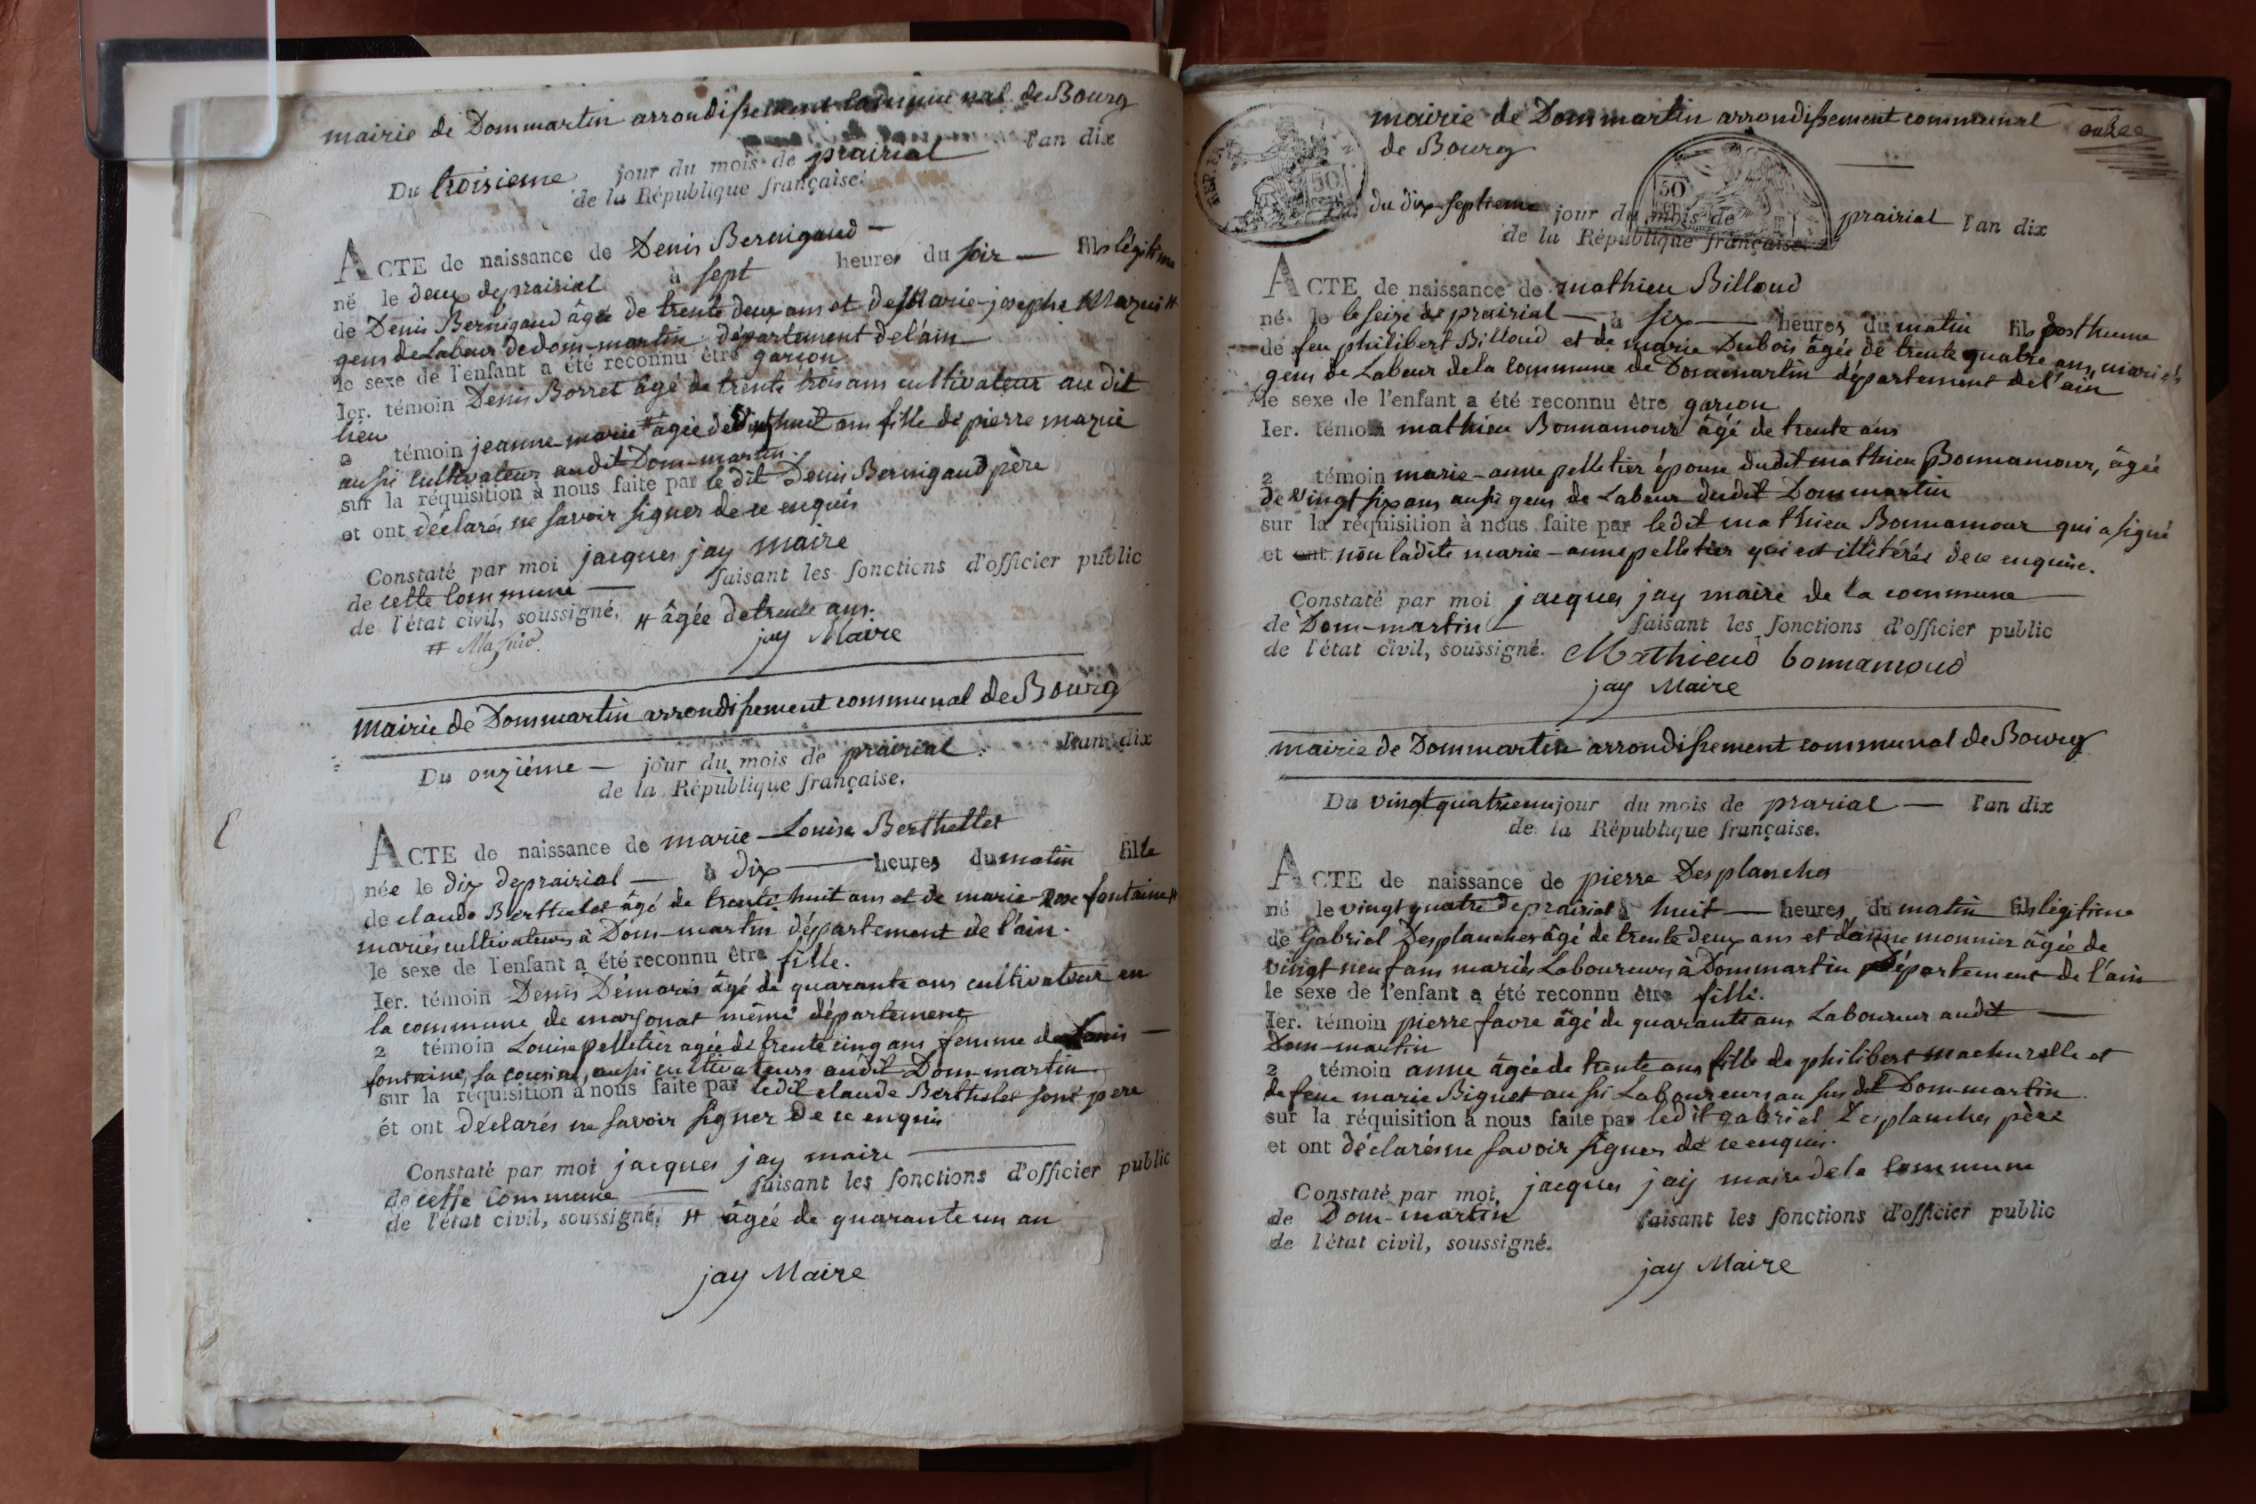 mairie de Dommartin arrondissement communal de Bourg
Du troisieme jour du mois de prairial l'an dix
de la République française.
ACTE de naissance de Denis Bernigaud
né le deux de prairial à sept heures du soir fils légitime
de Denis Bernigaud âgé de trente deux ans et de Marie-josephe Mazuis #
gens de Labeur de dom-martin département de lain
le sexe de l'enfant a été reconnu être garçon
Ier. témoin Denis Borret âgé de trente trois ans cultivateur au dit
lieu
2 témoin jeanne-marie # âgée de dix huit ans fille de pierre mazuie
aussi cultivateur audit Dom-martin.
sur la réquisition à nous faite par le dit Denis Bernigaud père
et ont déclarés ne savoir signer de ce enquis
Constaté par moi jacques jay maire
de cette commune faisant les fonctions d'officier public
de l'état civil, soussigné. # âgée de trente ans.
jay Maire
mairie de Dommartin arrondissement communal de Bourg
Du onziéme jour du mois de prairial l'an dix
de la République française.
ACTE de naissance de marie-Louise Berthellet
née le dix de prairial à dix heures du matin fille
de claude Berthelet âgé de trente huit ans et de marie-Rose fontaine #
mariés cultivateurs à Dom-martin département de l'ain.
le sexe de l'enfant a été reconnu être fille.
Ier. témoin Denis Démaris âgé de quarante ans cultivateur en
la commune de marsonat même département
2 témoin Louise pelletier agée de trente cinq ans femme de Louis
fontaine, sa cousine, aussi cultivateurs audit Dom-martin
sur la réquisition à nous faite par ledit claude Berthelet soné pere
ét ont déclarés ne savoir signer de ce enquis
Constaté par moi jacques jay maire
de cette commune faisant les fonctions d'officier public
de l'état civil, soussigné. # âgée de quarante un an
jay Maire
mairie de Dommartin arrondissement communal
de Bourg
du dix-septieme jour du mois de prairial l'an dix
de la République française.
ACTE de naissance de mathieu Billoud
né le le seize de prairial à six heures du matin fils posthume
de feu philibert Billoud et de marie Dubois âgée de trente quatre ans, mariés
gens de Labeur de la commune de Dommartin département de l'ain
le sexe de l'enfant a été reconnu être garçon
Ier. témoin mathieu Bonnamour âgé de trente ans
2 témoin marie-anne pelletier épouse dudit mathieu Bonnamour, âgée
de vingt six ans aussi gens de Labeur dudit Dommartin
sur la réquisition à nous faite par ledit mathieu Bonnamour qui a signé
et ont non ladite marie-anne pelletier qui est illitérée de ce enquise.
Constaté par moi jacques jay maire de la commune
de Dom-martin faisant les fonctions d'officier public
de l'état civil, soussigné. Mathieud bonnamoud
jay Maire
mairie de Dommartin arrondissement communal de Bourg
Du vingt quatrieme jour du mois de prarial l'an dix
de la République française.
ACTE de naissance de pierre Desplanches
né le vingt quatre de prairial à huit heures du matin fils légitime
de Gabriel Desplanches âgé de trente deux ans et d'anne monnier âgée de
vingt neuf ans mariés Laboureurs à Dommartin Département de l'ain
le sexe de l'enfant a été reconnu être fille.
Ier. témoin pierre favre âgé de quarante ans Laboureur audit
Dom-martin
2 témoin anne âgée de trente ans fille de philibert machurelle et
de feue marie Biguet aussi Laboureurs au susdit Dom-martin
sur la réquisition à nous faite par ledit gabriel Desplanches père
et ont déclarés ne savoir signer de ce enquis.
Constaté par moi, jacques jay maire de la commune
de Dom-martin faisant les fonctions d'officier public
de l'état civil, soussigné.
jay Maire